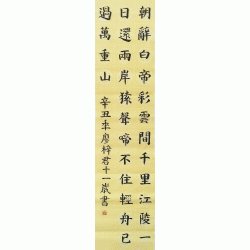 朝辭白帝彩雲間千里江陵一
日還兩岸猿聲啼不住輕舟已
過萬重山
辛丑年廖梓君十一歲書